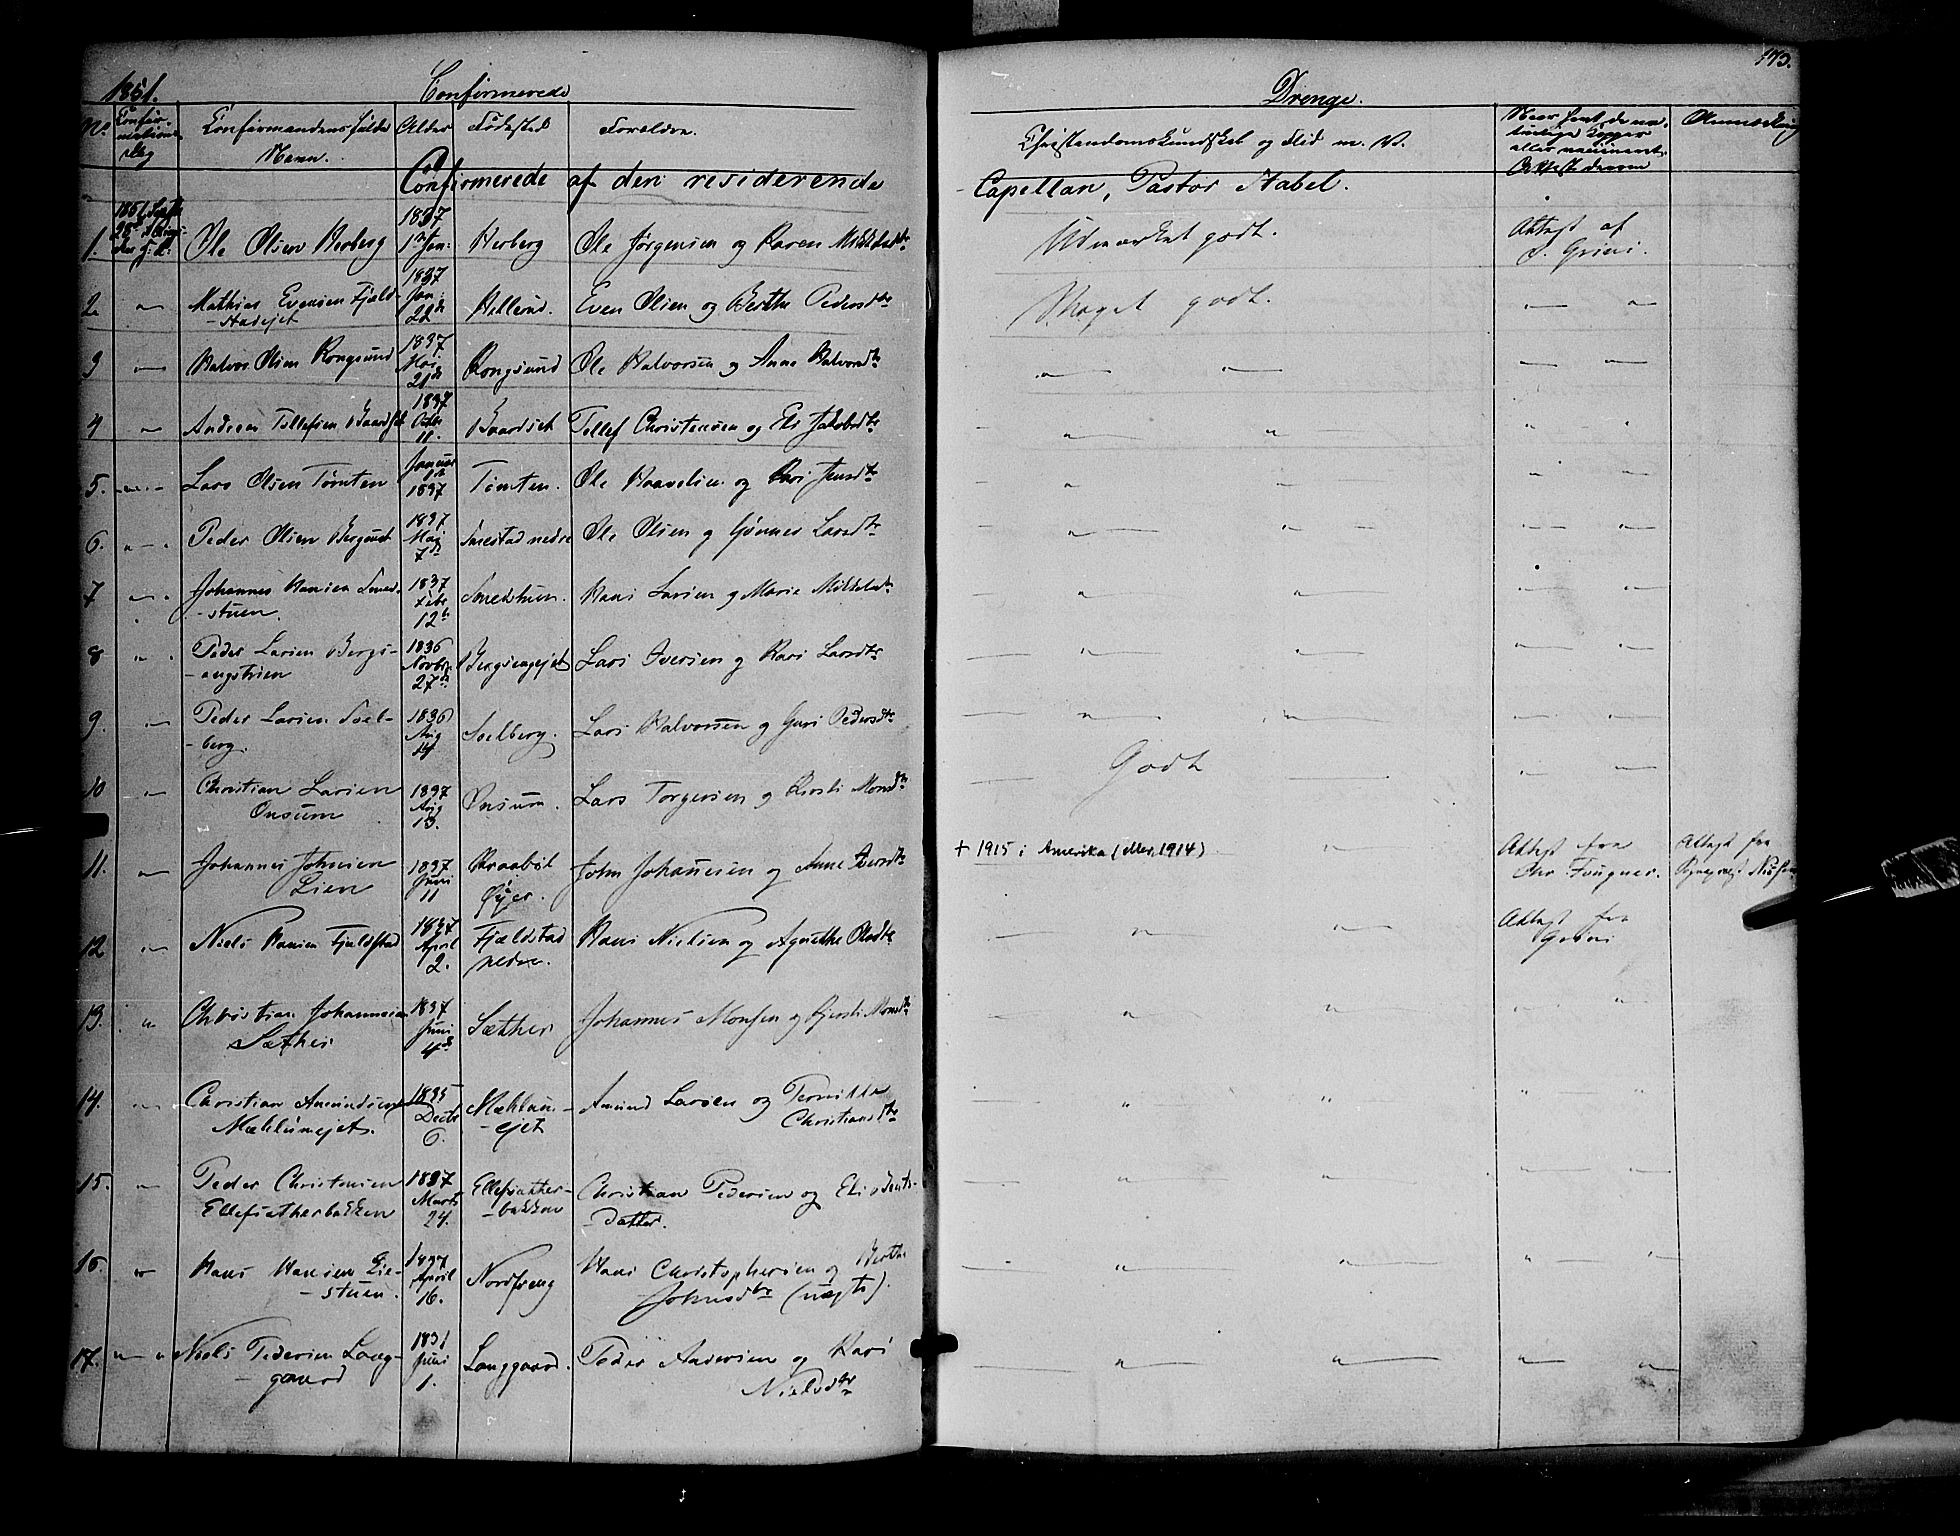 1851. Confirmerede
Drenge.
173.
No
Confir-
mations
Dag
Confirmandens fulde
Navn.
Alder
Fødested
Forældre.
Christendomskundskab og Flid m. V.
Naar havt de na-
turlige Kopper
eller vaccineret.
Attest derom
Anmærkning
Confirmerede af den residerende
Capellan, Pastor Stabel.
1. Ole Olsen Herberg 1837 1ste Jan: Herberg Ole Jørgensen og Karen Mikkelsdtr Udmærket godt. Attest af
S. Grini.
2. " Mathias Evensen Fjeld-
-stadejet 1837 Jan: 22de Hellerud. Even Olsen og Berthe Pedersdtr Meget godt. " "
3 " Halvor Olsen Rongsund 1837 Maj 21de Rongsund Ole Halvorsen og Anne Halvorsdtr " "
4 " Andreas Tollefsen Baardset 1837 Octbr 11. Baardset Tollef Christensen og Eli Jakobsdtr " "
5. " Lars Olsen Tømten Januar 1ste 1837 Tømten. Ole Haavelsen og Kari Jensdtr " "
6. " Peder Olsen Bergundt 1837 Maj 7de Smestad nedre Ole Olsen og Gønner Larsdtr " "
7 " Johannes Hansen Smed-
-stuen. 1837 Febr 12te Smedstuen. Hans Larsen og Marie Mikkelsdtr " "
8 " Peder Larsen Bergs-
-engstuen 1836 Novbr 27de Bergsengejet Lars Iversen og Kari Larsdtr " "
9. " Peder Larsen Soel-
-berg. 1836 Aug 14 Soelberg. Lars Halvorsen og Guri Pedersdtr " "
10 " Christian Larsen
Onsum 1837 Aug 13. Onsum. Lars Torgersen og Kirsti Monsdtr Godt " "
11. " Johannes Johnsen
Lien 1837 Juni 11 Kraabøl
Øyer. John Johansen og Anne Iversdtr + 1915 i Amerika (eller 1914) " Attest fra
Chr Fougner. Attest fra
12 " Niels Hansen Fjeldstad 1837 April 2. Fjeldstad
nedre. Hans Nielsen og Agnethe Olsdtr " " Attest fra
Grini
13. " Christian Johannesen
Sæther 1837 Juni 4de Sæther Johannes Monsen og Kjersti Monsdtr " "
14. " Christian Amundsen
Mæhlumejet. 1835 Decbr 6. Mæhlum-
-ejet Amund Larsen og Pernille
Christiansdtr " "
15. " Peder Christensen
Ellefsætherbakken 1837 Marts 24. Ellefsæther-
-bakken Christian Pedersen og Eli
-datter. " "
16. " Hans Hansen Lie-
-stuen. 1837 April 16. Nordseng Hans Christophersen og Berthe
Johnsdtr (uægte). " "
17. " Niels Pedersen Lang-
-gaard 1831 Juni 1. Langgaard. Peder Andersen og Kari
Nielsdtr " "